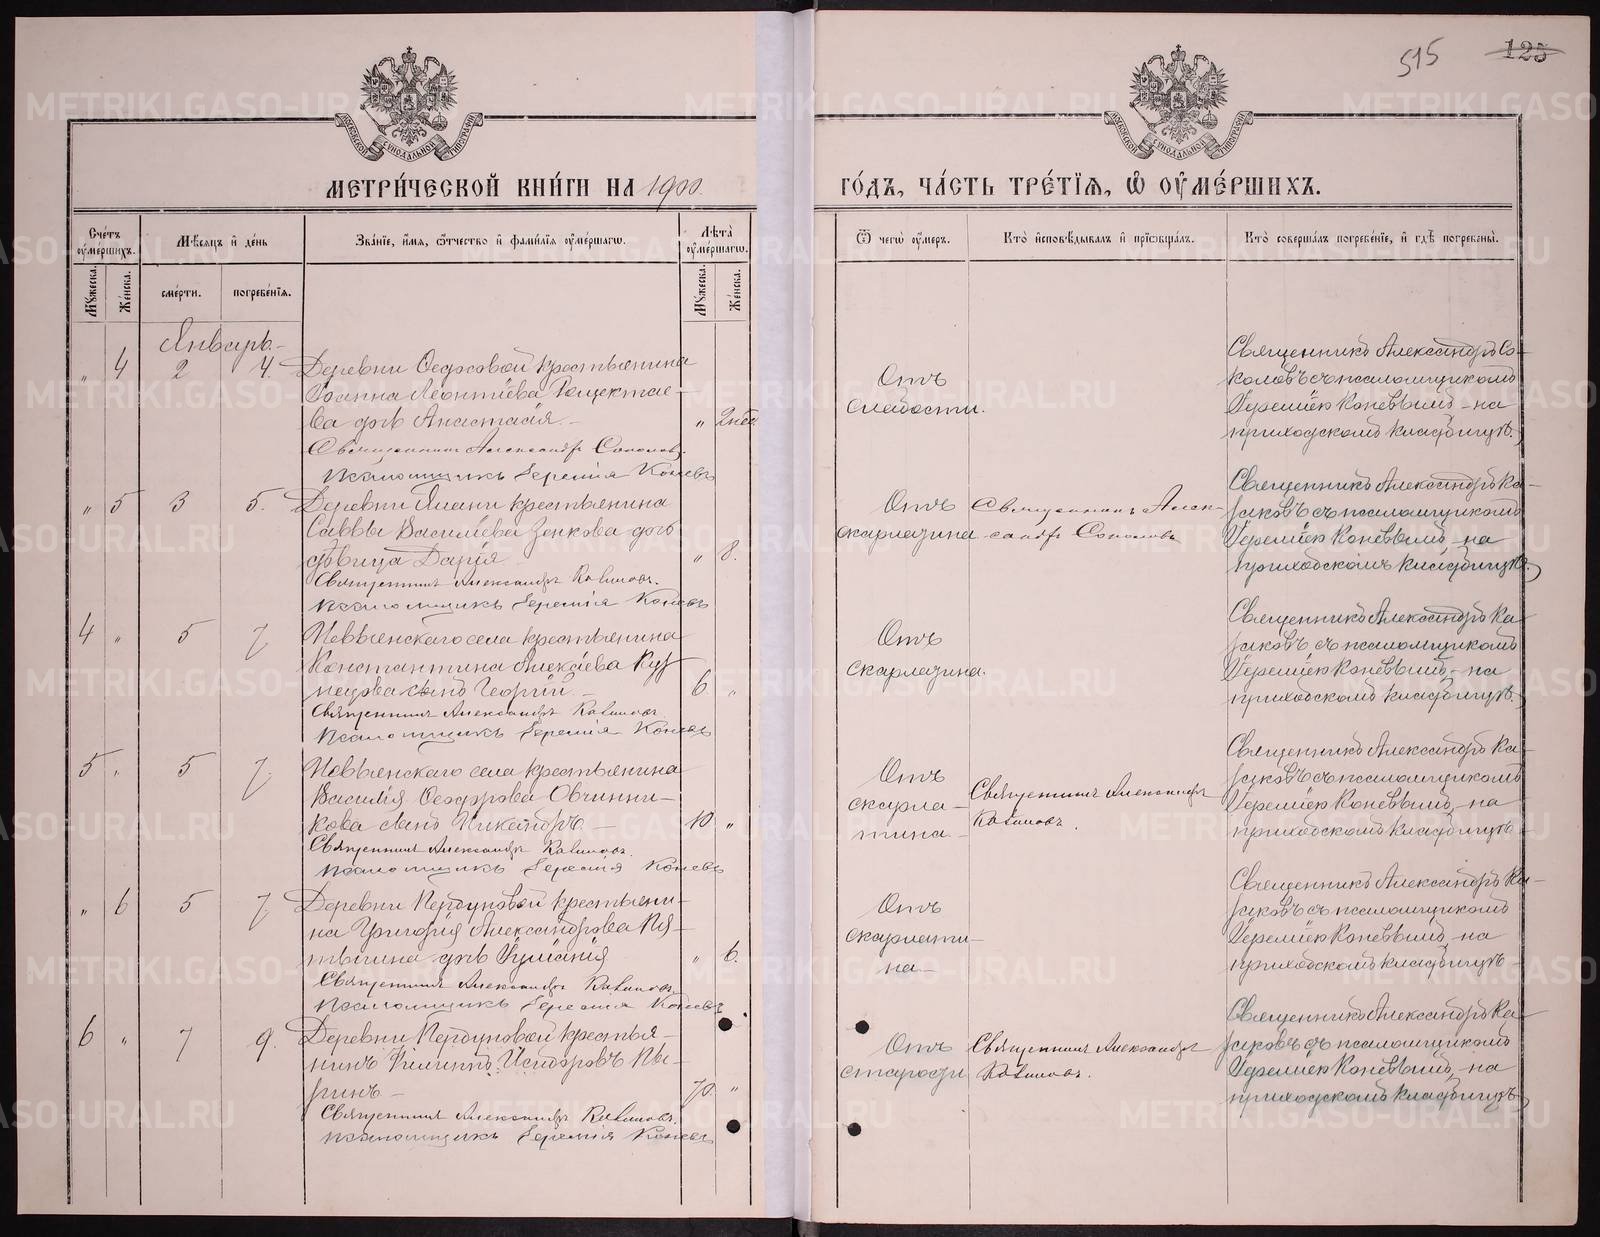 515
125
МЕТРИ́ЧЕСКОЙ КНИ́ГИ НА 1900
ГО́ДЪ, ЧА́СТЬ ТРЕ́ТІѦ, Ѡ҆ ОУ҆МЕ́РШИХЪ.
Сче́тъ оу҆ме́ршихъ.
Мꙋ́жеска.
Же́нска.
Мѣ́сяцъ и҆ де́нь
сме́рти.
погребе́нїѧ.
Зва́нїе, и҆́мѧ, ѻ҆́тчество и҆ фами́лїѧ оу҆ме́ршагѡ.
Лѣ́та̀ оу҆ме́ршагѡ.
Мꙋ́жеска.
Же́нска.
Ѿ чегѡ̀ оу҆́меръ.
Кто̀ и҆сповѣ́дывалъ и҆ прїѻбща́лъ.
Кто̀ соверша́лъ погребе́нїе, и҆ гдѣ̀ погребены̀.
Январь
" 4 2 4 Деревни Ѳедосовой крестьянина
Іоанна Леонтіева
ва дочь Анастасія. " 2 нед.
Священникъ Александръ Соколовъ.
Псаломщикъ Іеремія Коневъ
Отъ
слабости.
Священникъ Александръ Со-
коловъ съ псаломщикомъ
Іереміею Коневымъ, на
приходскомъ кладбищѣ.
" 5 3 5. Деревни крестьянина
Саввы Васильева Зенкова дочь
дѣвица Дарія " 8.
Священникъ Александръ Казаковъ.
Псаломщикъ Іеремія Коневъ
Отъ
скарлатина
Священникъ Алек-
сандръ Соколовъ
Священникъ Александръ Ка-
заковъ съ псаломщикомъ
Іереміею Коневымъ, на
приходскомъ кладбищѣ.
4 " 5 7 Невьянскаго села крестьянина
Константина Алексѣева Куз-
нецова сынъ Георгій 6 "
Священникъ Александръ Казаковъ
Псаломщикъ Іеремія Коневъ
Отъ
скарлатина.
Священникъ Александръ Ка-
заковъ съ псаломщикомъ
Іереміею Коневымъ, на
приходскомъ кладбищѣ.
5 " 5 7 Невьянскаго села крестьянина
Василія Ѳеодорова Овчинни-
кова сынъ Никандръ 10 "
Священникъ Александръ Казаковъ.
Псаломщикъ Іеремія Коневъ
Отъ
скарла-
тина
Священникъ Александръ
Казаковъ.
Священникъ Александръ Ка-
заковъ съ псаломщикомъ
Іереміею Коневымъ, на
приходскомъ кладбищѣ
" 6 5 7 Деревни Пердуновой крестьяни-
на Григорія Александрова Пя-
тыгина дочь " 6.
Священникъ Александръ Казаковъ
Псаломщикъ Іеремія Коневъ
Отъ
скарлати-
на
Священникъ Александръ Ка-
заковъ съ псаломщикомъ
Іереміею Коневымъ, на
приходскомъ кладбищѣ
6 " 7 9. Деревни Пердуновой крестья-
нинъ Филиппъ Исидоровъ Пы-
ринъ 70. "
Священникъ Александръ Казаковъ.
Псаломщикъ Іеремія Коневъ
Отъ
старости
Священникъ Александръ
Казаковъ.
Священникъ Александръ Ка-
заковъ съ псаломщикомъ
Іереміею Коневымъ, на
приходскомъ кладбищѣ
METRIKI.GASO-URAL.RU